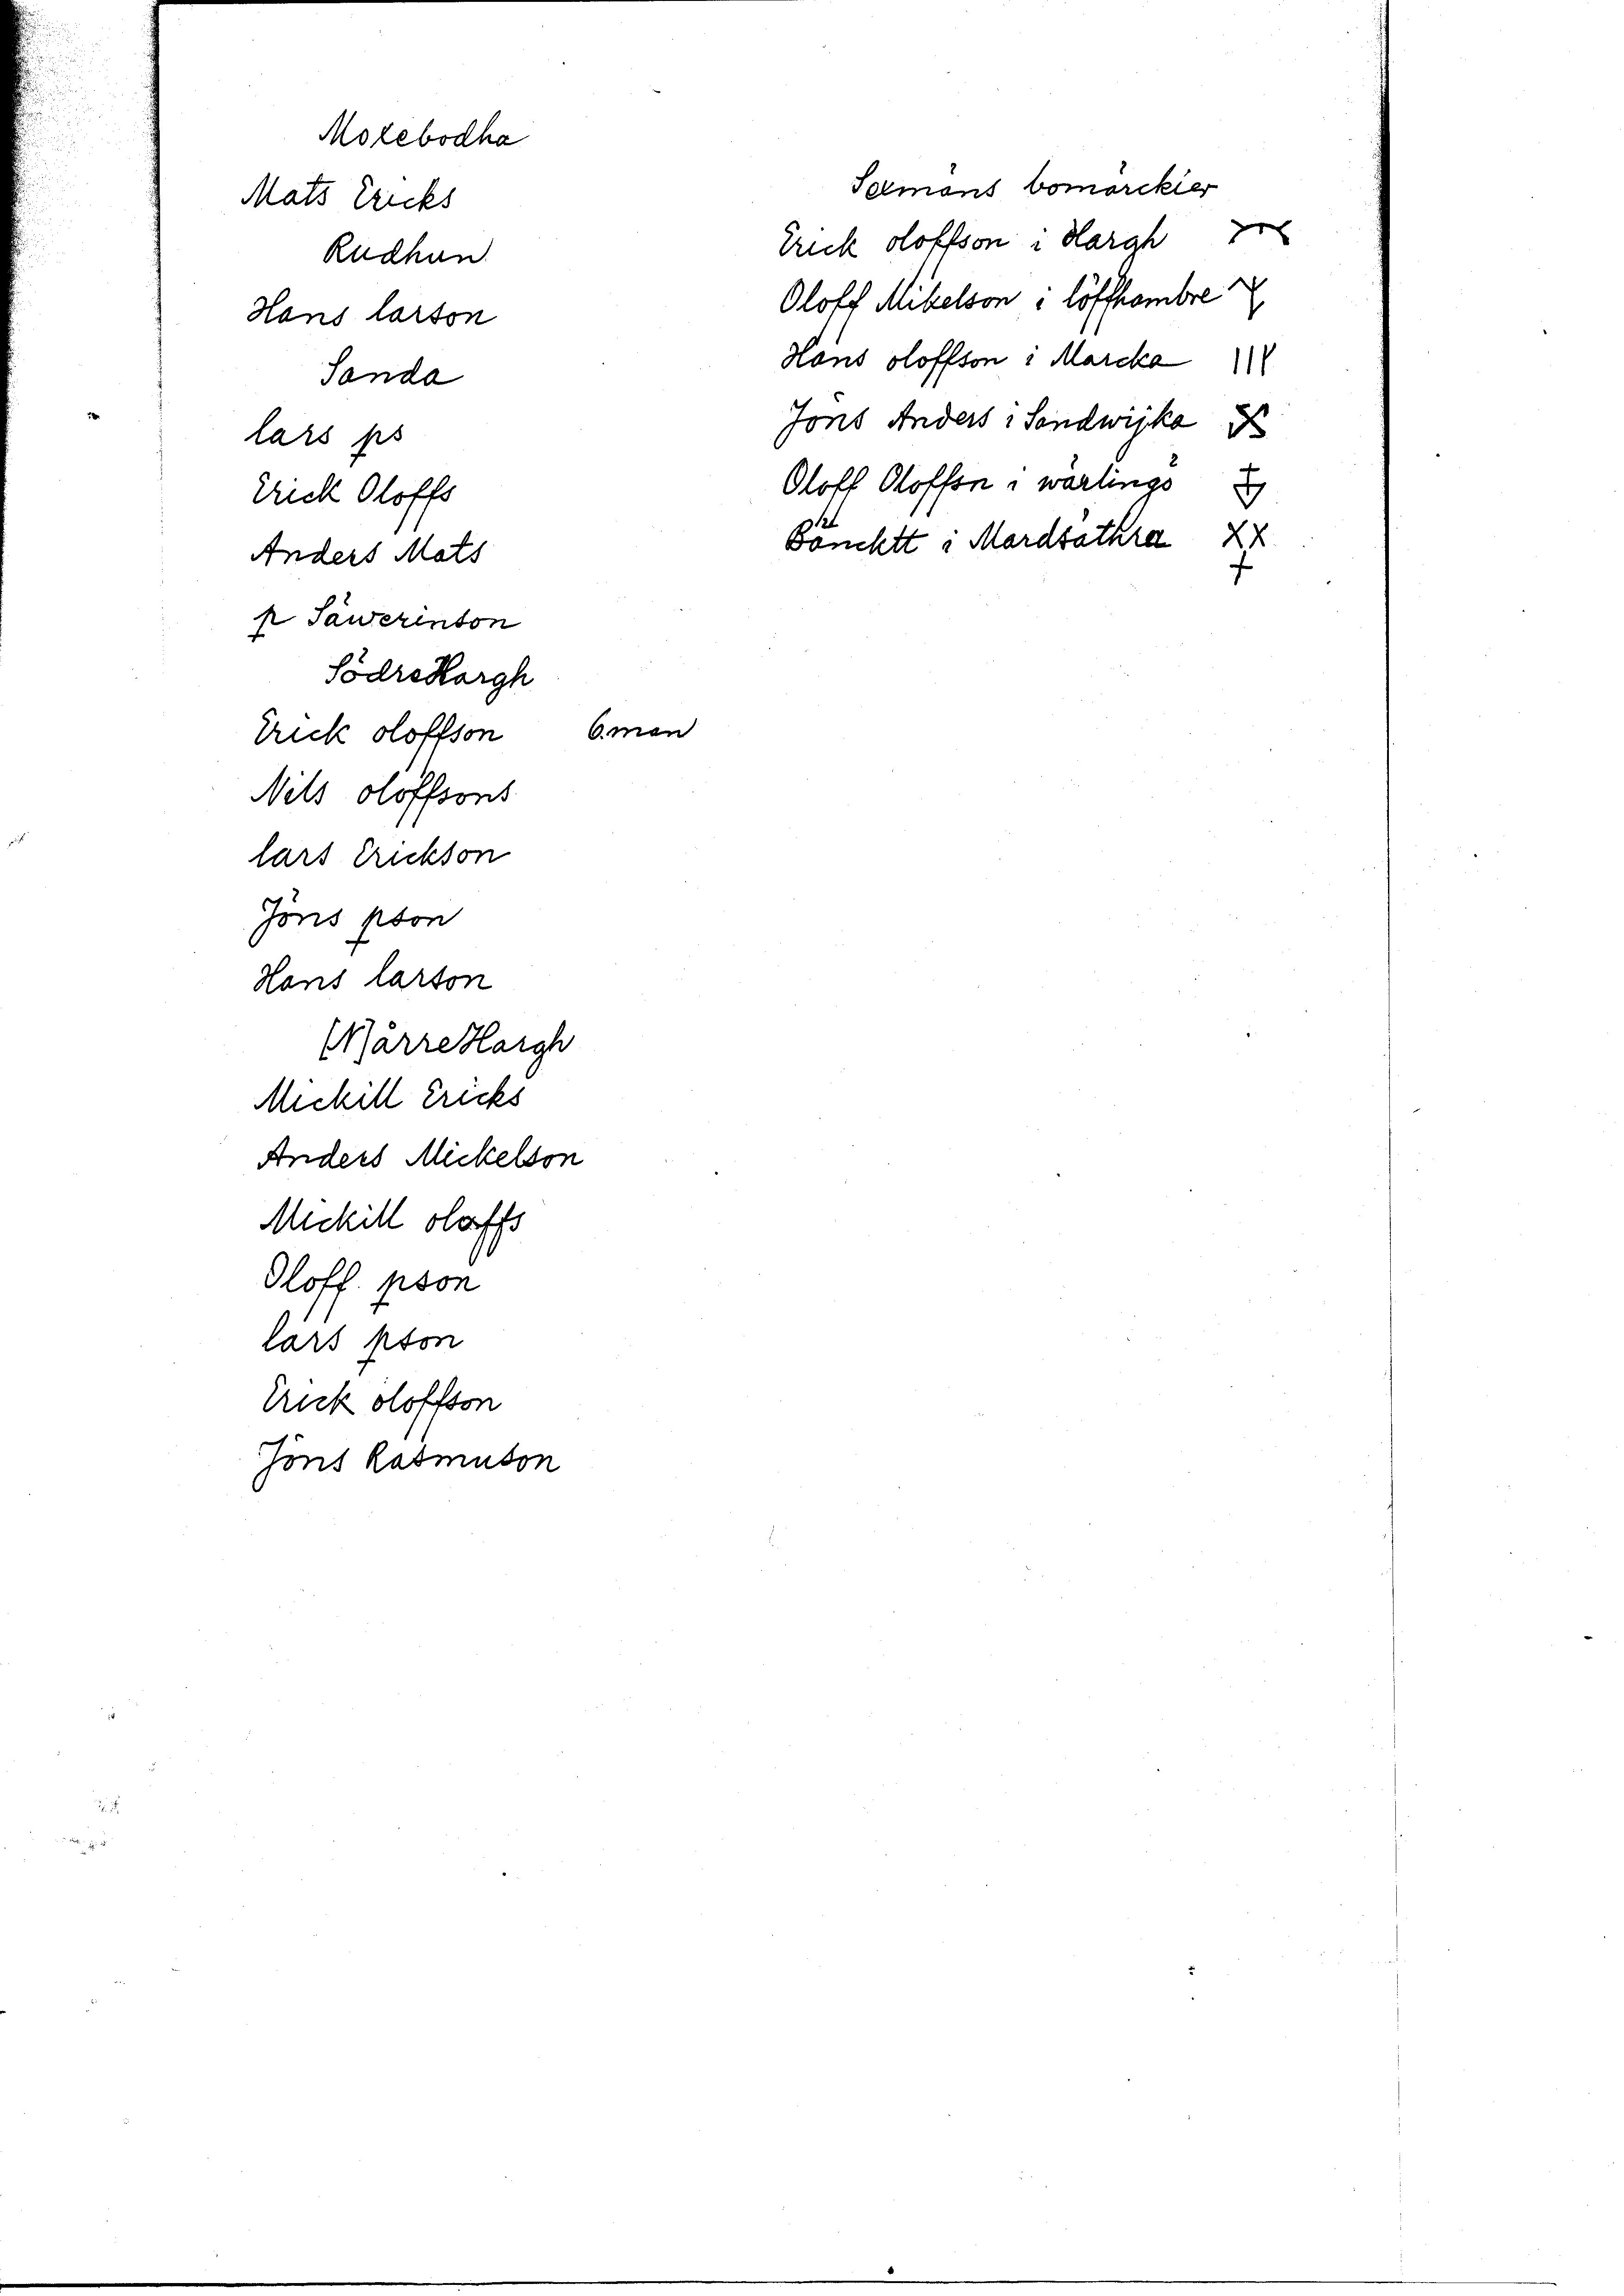 Morebodha
Mats Ericks
Rudhun
Hans larson
Sanda
lars ps
Erick Oloffs
Anders Mats
p Säwerinson
Södre Hargh
Erick oloffson 6.man
Nils oloffsons
lars Erickson
Jöns pson
Hans larson
[N]årre Hargh
Michill Ericks
Anders Mickelson
Mickill oloffs
Oloff. pson
lars pson
Erick oloffson
Jöns Rasmuson
Sexmäns bomärckier
Erick oloffson i Hargh
Oloff Mikelson i löffhambre
Hans oloffson i Marcka
Jöns Anders i Sandwijka
Oloff Oloffsn i wärlingsö
Bänchtt i Mardsäthra